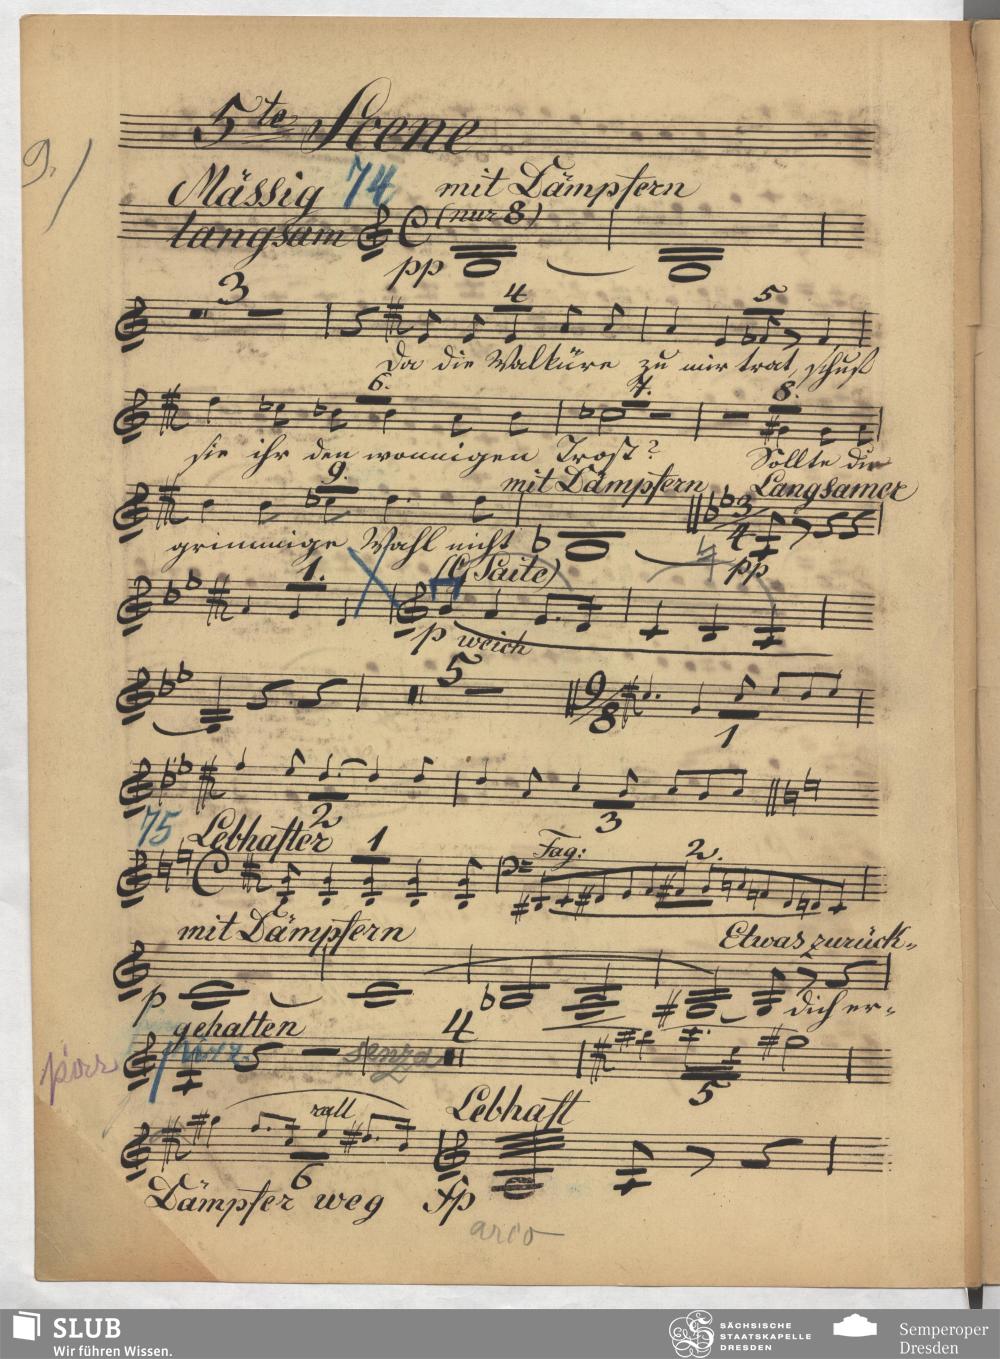 5te Scene
9.
Mässig 74 mit Dämpfern
langsam (nur 8)
pp
3 4 5
Da die Walküre zu mir trat, schuf
6. 7. 8.
sie ihr den wonnigen Trost? Sollte die
9. mit Dämpfern Langsamer
3/4
grimmige Wahl nicht
pp
1. (G Saite)
p weich
5 9/8
1
2 3
75 Lebhafter 1 Fag: 2.
mit Dämpfern Etwas zurück-
p dich er-
gehalten 4
pizz. pizz. senza
5
rall Lebhaft
6
Dämpfer weg fp
arco
SLUB
Wir führen Wissen.
SÄCHSISCHE
STAATSKAPELLE
DRESDEN
Semperoper
Dresden